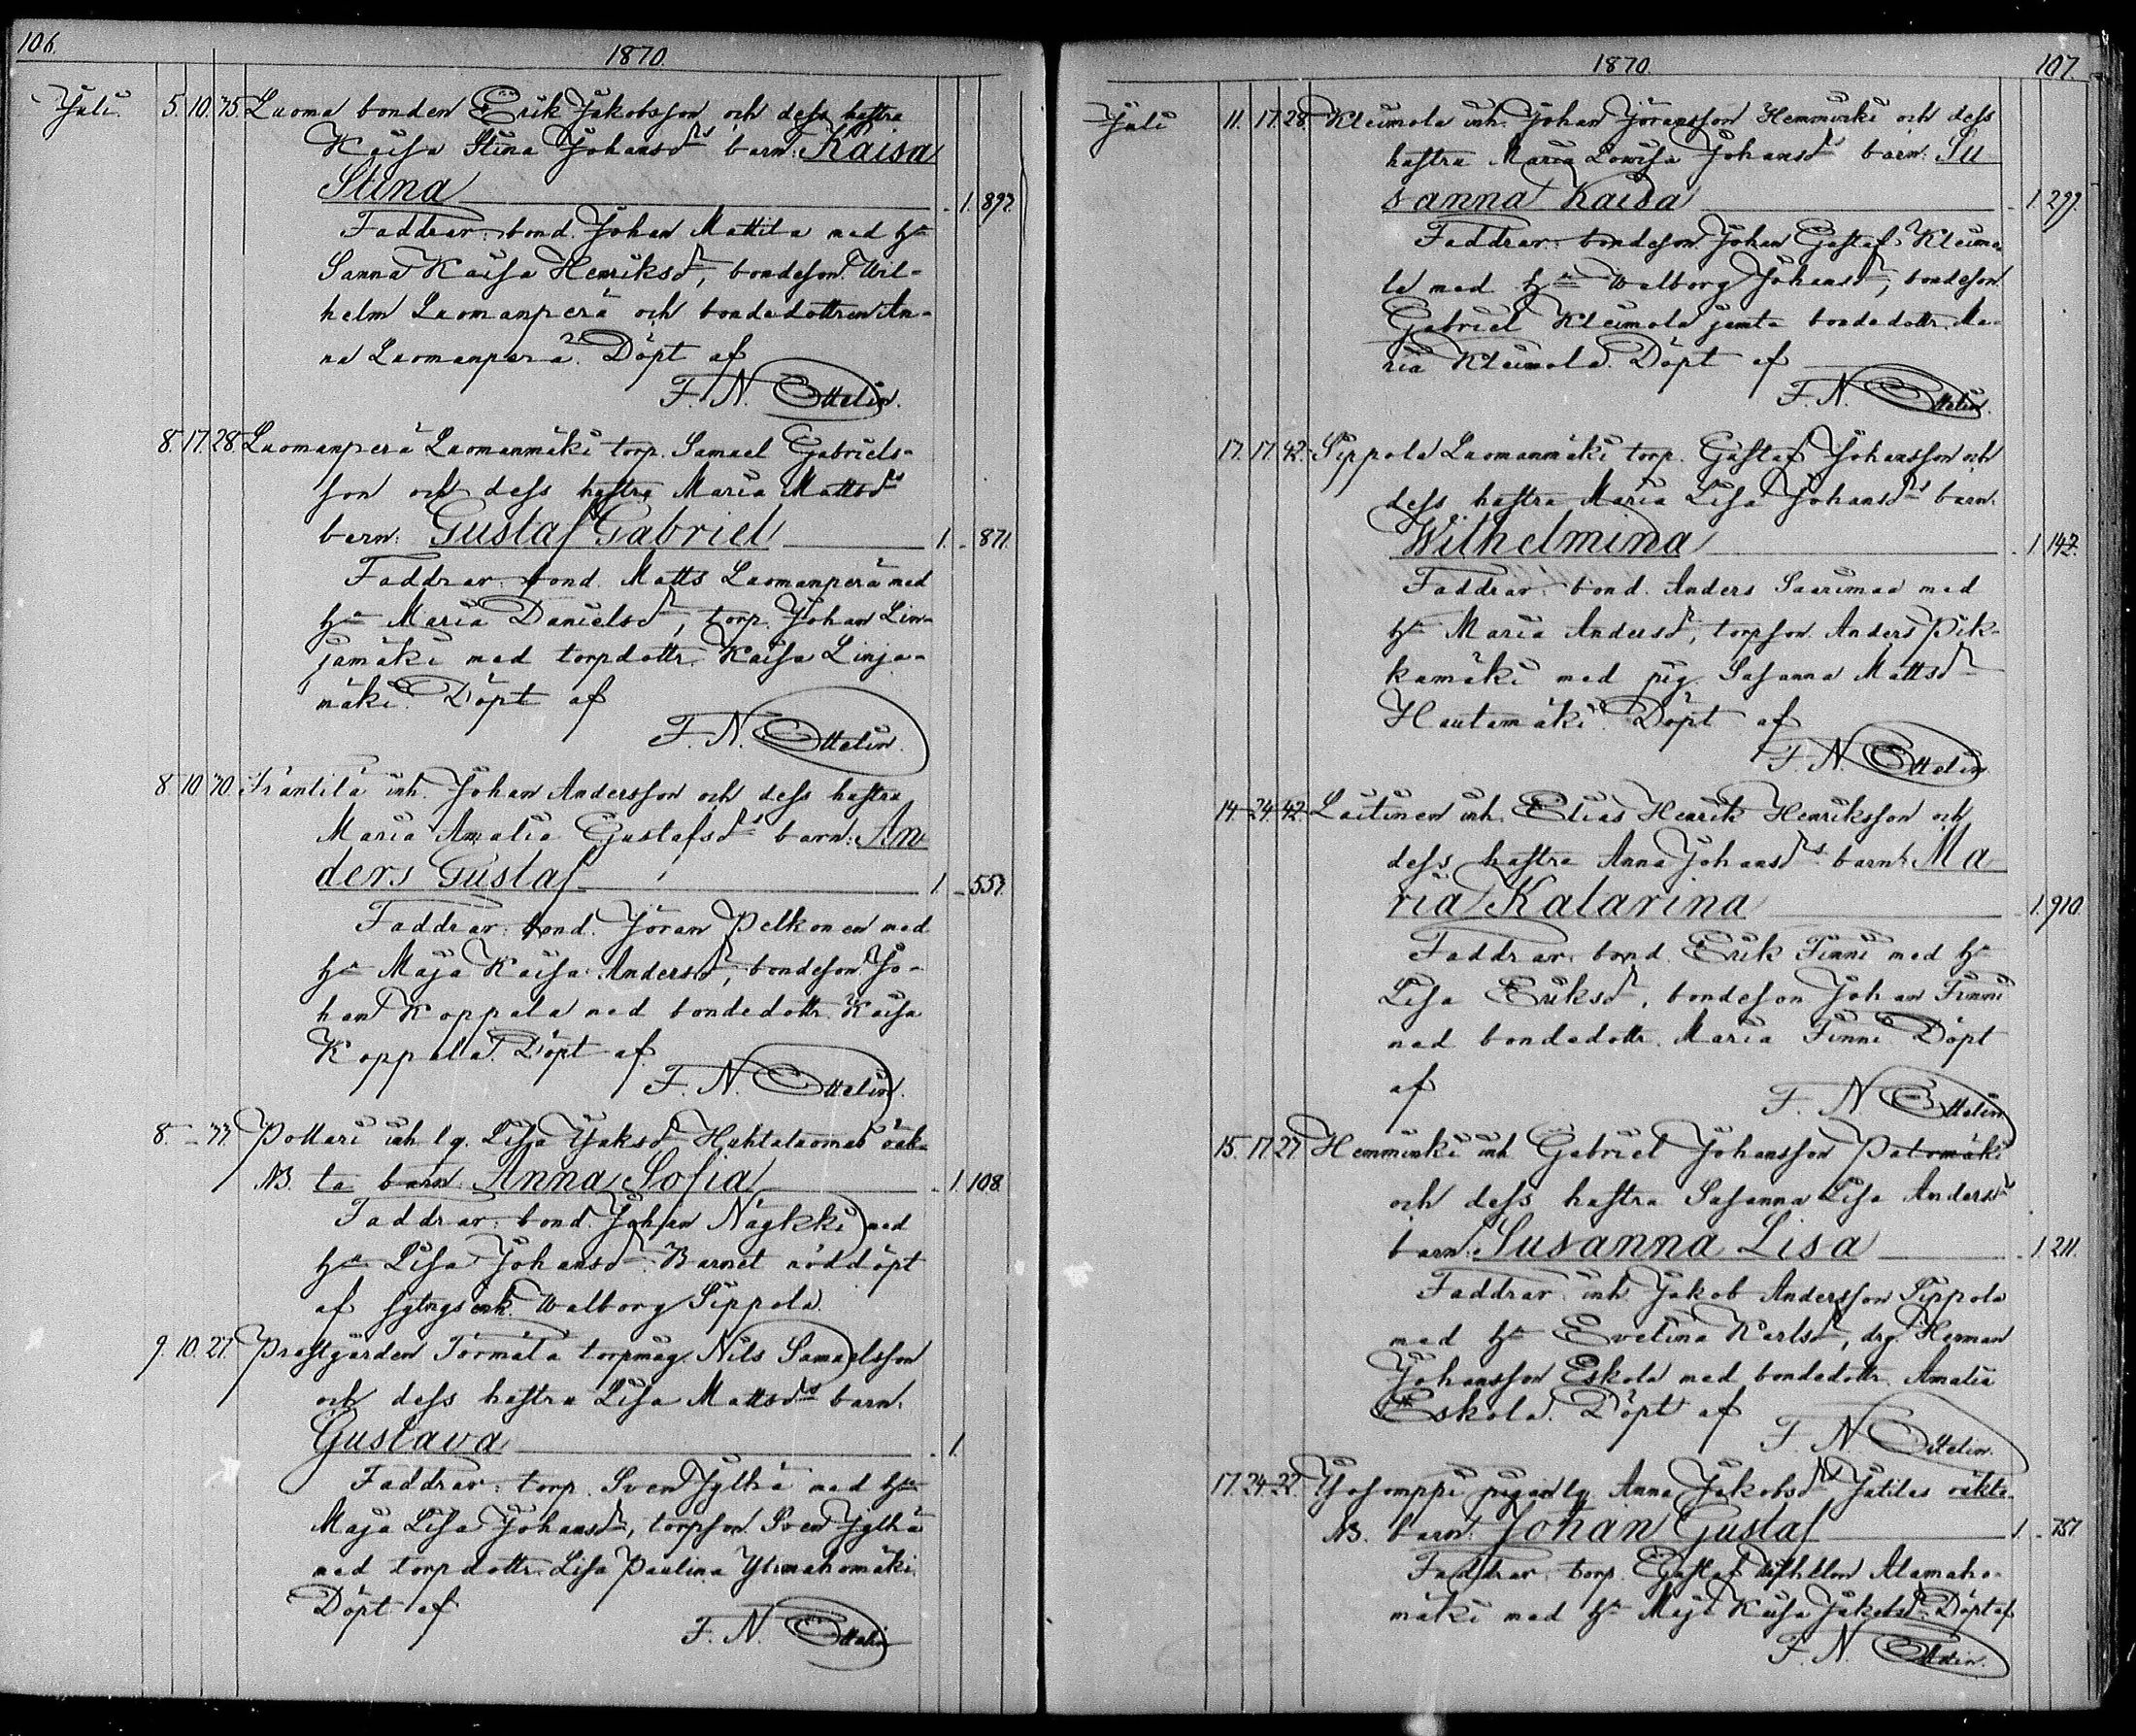 106.
1870.
Juli. 5. 10. 35. Luoma bonden Erik Jakobsson och dess hustru
Kaisa Stina Johansdrs barn: Kaisa
Stina 1. 897.
Faddrar: bond. Johan Mattila med h:u
Sanna Kaisa Henriksdr, bondeson Wil-
helm Luomanperä och bondedottren An-
na Luomanperä. Döpt af
F. N. Ottelin.
8. 17. 28. Luomanperä Luomanmäki torp. Samuel Gabriels-
son och dess hustru Maria Mattsdrs
barn: Gustaf Gabriel 1. 871.
Faddrar: bond. Matts Luomanperä med
h:u Maria Danielsdr, torp. Johan Lin-
jamäki med torpdottr. Kaisa Linja-
mäki. Döpt af
F. N. Ottelin.
8. 10. 30. Träntilä inh. Johan Andersson och dess hustru
Maria Amalia Gustafsdrs barn: An
ders Gustaf 1. 557.
Faddrar: bond. Jöran Pelkonen med
h:u Maja Kaisa Andersdr, bondeson Jo-
han Koppala med bondedottr. Kaisa
Koppala. Döpt af
F. N. Ottelin.
8. 33. Pottari inh. lg. Lisa Jaksdr Huhtaluomas oäk-
NB. ta barn Anna Sofia 1. 108.
Faddrar: bond. Johan Näykki med
h:u Lisa Johansdr. Barnet nöddöpt
af sytngsenk. Walborg Sippola.
9. 10. 27. Prästgården Törmälä torpmåg. Nils Samuelsson
och dess hustru Lisa Mattsdrs barn.
Gustava 1.
Faddrar: torp. Sven Jylhä med h:u
Maja Lisa Johansdr, torpson Sven Jylhä
med torpdottr. Lisa Paulina Ylimahomäki.
Döpt af
F. N. Ottelin
1870.
107.
Juli 11. 17. 28. Kleimola inh. Johan Jöransson Hemminki och dess
hustru Maria Lowisa Johansdrs barn: Su
sanna Kaisa 1. 299.
Faddrar: bondeson Johan Gustaf Kleimo
la med h:u Walborg Johansdr, bondeson
Gabriel Kleimola jemte bondedottr. Ma-
ria Kleimola. Döpt af
F. N. Ottelin.
17. 17. 42. Sippola Luomanmäki torp. Gustaf Johansson och
dess hustru Maria Lisa Johansdrs barn.
Wilhelmina 1. 142.
Faddrar: bond. Anders Saarimaa med
h:u Maria Andersdr, torpson Anders Pik-
kumäki med pig. Susanna Mattsdr
Hautamäki. Döpt af
F. N. Ottelin.
14. 24. 42. Laitinen inh. Elias Henrik Henriksson och
dess hustru Anna Johansdrs barn: Ma
ria Katarina 1. 910.
Faddrar: bond. Erik Finni med h:u
Lisa Eriksdr, bondeson Johan Finni
med bondedottr. Maria Finni Döpt
af F. N. Ottelin
15. 17. 27. Hemminki inh. Gabriel Johansson Patomäki
och dess hustru Susanna Lisa Andersdrs
barn: Susanna Lisa 1. 211.
Faddrar: inh. Jakob Andersson Sippola
med h:u Evelina Karlsdr, drg. Herman
Johansson Eskola med bondedottr. Amalia
Eskola. Döpt af
F. N. Ottelin.
17. 24. 22. pigan lg. Anna Jakobsdr Jutilas oäkta
NB. barn: Johan Gustaf 1. 757
Faddrar: torp. Gustaf Wilhelm Alamaho-
mäki med h:u Maja Kaisa Jakobsdr. Döpt af
F. N. Ottelin.